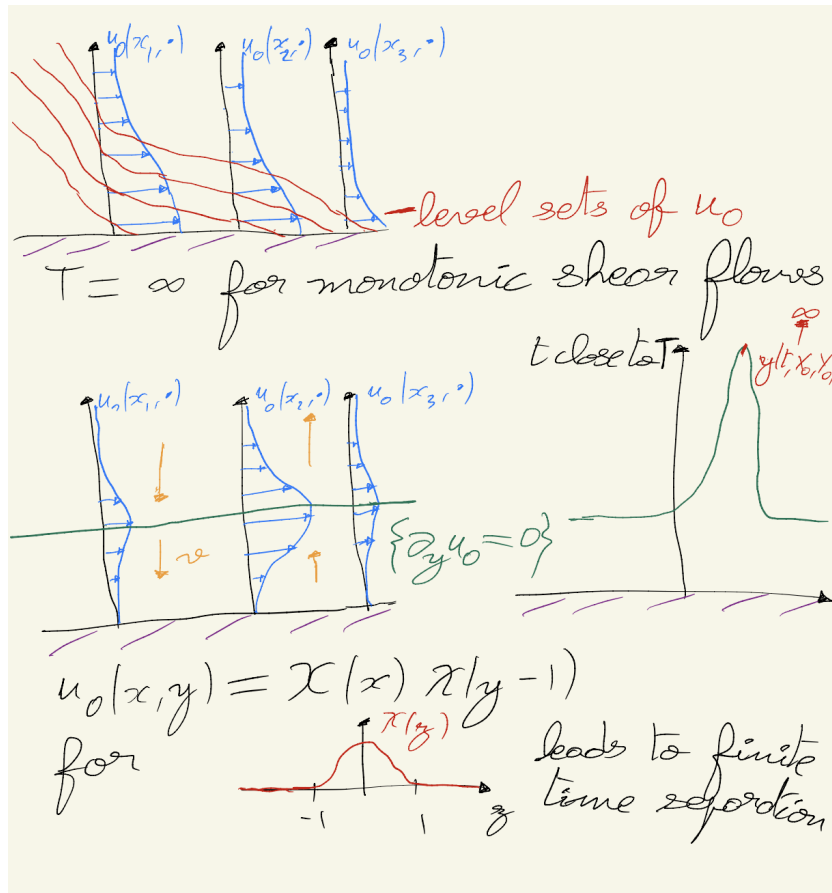 u₀(x₁,·) u₀(x₂,·) u₀(x₃,·)
level sets of u₀
T = ∞ for monotonic shear flows
∞
t close to T
y(t, X₀, Y₀,
u₀(x₁,·) u₀(x₂,·) u₀(x₃,·)
v
{∂_y u₀ = 0}
u₀(x,y) = χ(x) χ(y-1)
χ(z)
for
leads to finite
-1 1 z
time separtion